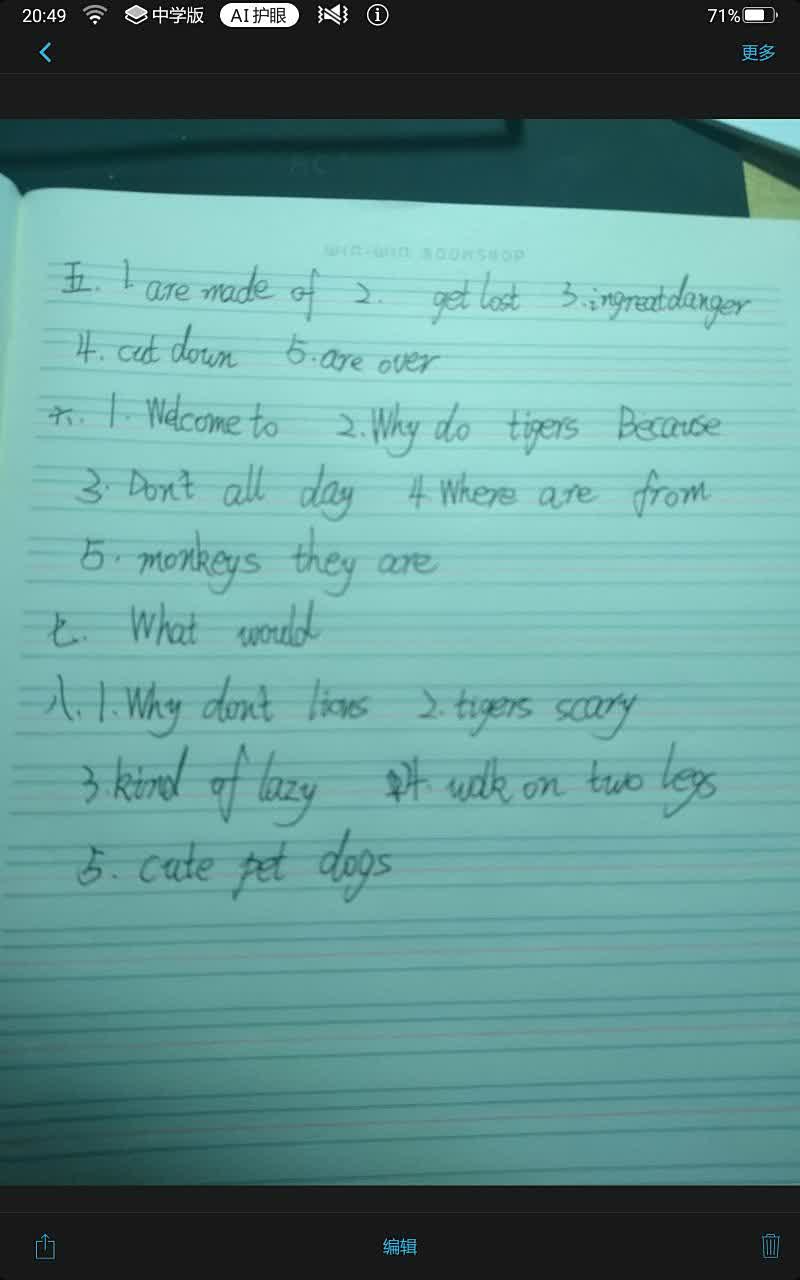 20:49 中学版 AI护眼 71%
更多
WIN-WIN BOOKSHOP
五. 1 are made of 2. get lost 3. in great danger
4. cut down 5. are over
六. 1. Welcome to 2. Why do tigers Because
3. Don't all day 4. Where are from
5. monkeys they are
七. What would
八. 1. Why don't lions 2. tigers scary
3. kind of lazy 4. walk on two legs
5. cute pet dogs
编辑